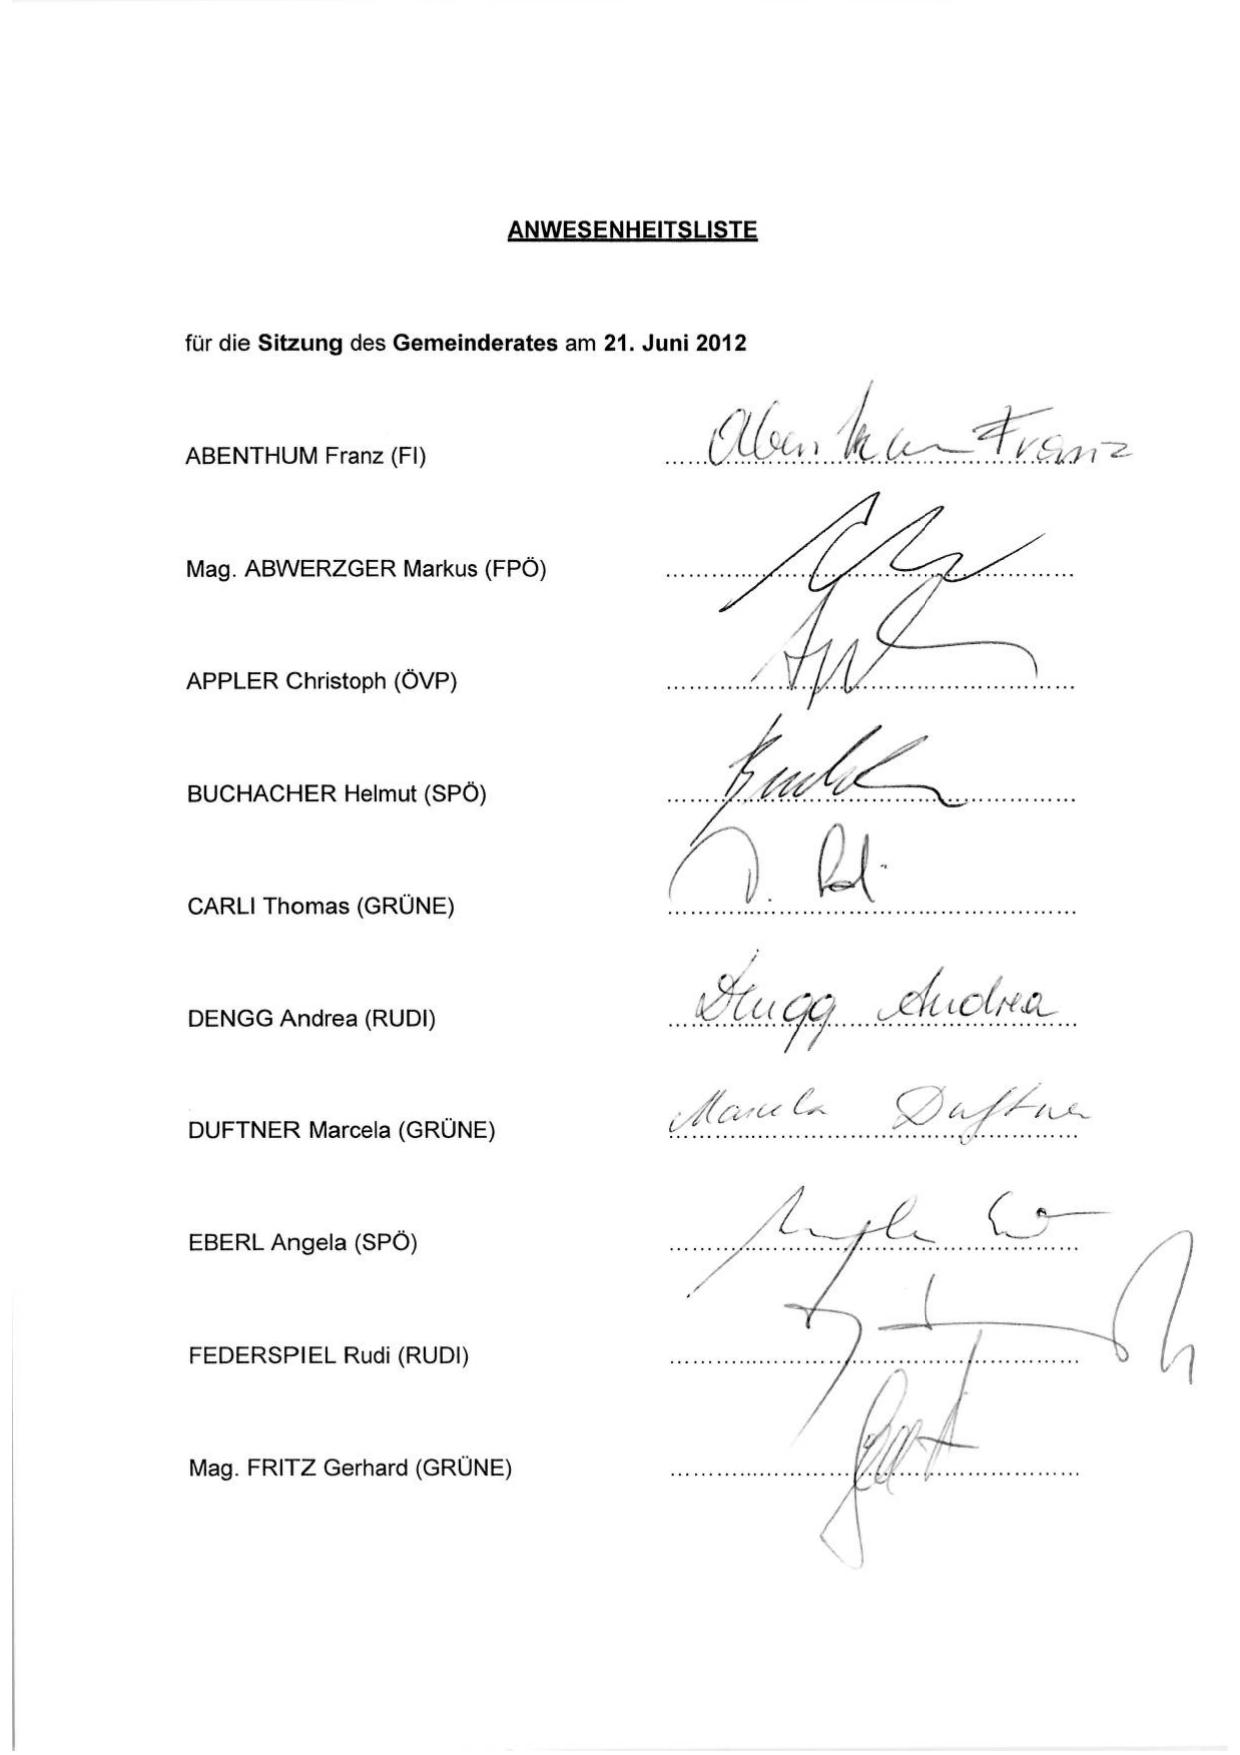 ANWESENHEITSLISTE
für die Sitzung des Gemeinderates am 21. Juni 2012
ABENTHUM Franz (FI) Abenthum Franz
Mag. ABWERZGER Markus (FPÖ)
APPLER Christoph (ÖVP)
BUCHACHER Helmut (SPÖ)
CARLI Thomas (GRÜNE)
DENGG Andrea (RUDI) Dengg Andrea
DUFTNER Marcela (GRÜNE) Marcela Duftner
EBERL Angela (SPÖ) Angela
FEDERSPIEL Rudi (RUDI)
Mag. FRITZ Gerhard (GRÜNE)